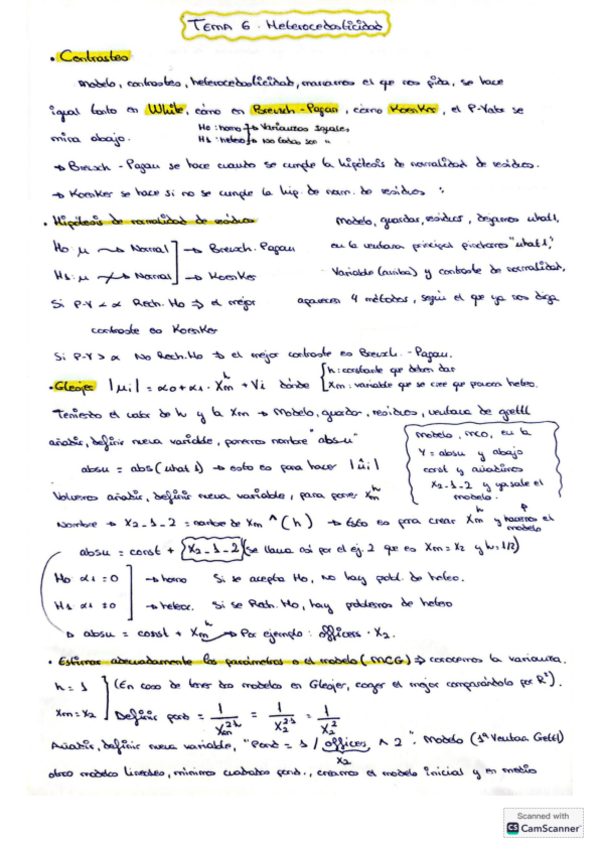 TEMA 6. Heterocedasticidad
• Contrastes
Modelo, contrastes, heterocedasticidad, marcamos el que nos pida, se hace
igual tanto en White, como en Breusch-Pagan, como Koenker, el P-Valor se
mira abajo. Ho: homo → Varianzas iguales
H1: hetero → No todas son "
→ Breusch-Pagan se hace cuando se cumple la hipótesis de normalidad de residuos.
→ Koenker se hace si no se cumple la hip. de norm. de residuos :
• Hipótesis de normalidad de residuos
Ho: μ → Normal → Breusch-Pagan
H1: μ → Normal → Koenker
Si P-V < α Rech. Ho ⇒ el mejor
contraste es Koenker
Modelo, guardar, residuos, dejamos uhat1,
en la ventana principal pinchamos "uhat1",
Variable (arriba) y contraste de normalidad,
aparecen 4 métodos, según el que ya nos diga
Si P-V > α No Rech. Ho → el mejor contraste es Breusch.-Pagan.
• Glesjer |μi| = α0 + α1 · Xm^h + Vi dónde
h: constante que deben dar
Xm: variable que se cree que provoca hetero.
Teniendo el valor de h y la Xm → Modelo, guardar, residuos, ventana de gretl
añadir, definir nueva variable, ponemos nombre "absu"
absu = abs(uhat1) → esto es para hacer |û i|
Volvemos añadir, definir nueva variable, para poner Xm^h
Nombre → X2_1_2 = nombre de Xm ^ (h) → Esto es para crear Xm^h y hacemos el
modelo
Modelo, MCO, en la
Y = absu y abajo
const y añadimos
X2_1_2 y ya sale el
modelo.
absu = const + X2_1_2 (se llama así por el ej. 2 que es Xm = X2 y h = 1/2)
Ho α1 = 0 → homo Si se acepta Ho, No hay probl. de hetero.
H1 α1 ≠ 0 → heter. Si se Rech. Ho, hay problemas de hetero
→ absu = const + Xm^h → Por ejemplo: officers · X2.
• Estimar adecuadamente los parámetros o el modelo (MCG) ⇒ conocemos la varianza.
h = 1 (En caso de tener dos modelos en Glesjer, coger el mejor comparándolo por R²).
Xm = X2 Definir pond = 1/Xm^2h = 1/X2^2·1 = 1/X2^2
Añadir, definir nueva variable, "Pond = 1 / officers ^ 2". Modelo (1ª Ventana Gretl)
X2
otros modelos lineales, mínimos cuadrados pond., creamos el modelo inicial y en medio
Scanned with
CS CamScanner